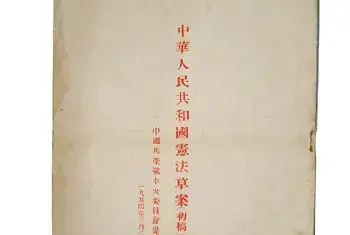 中華人民共和國憲法草案(初稿
中國共產黨中央委員會
一九五四年 月